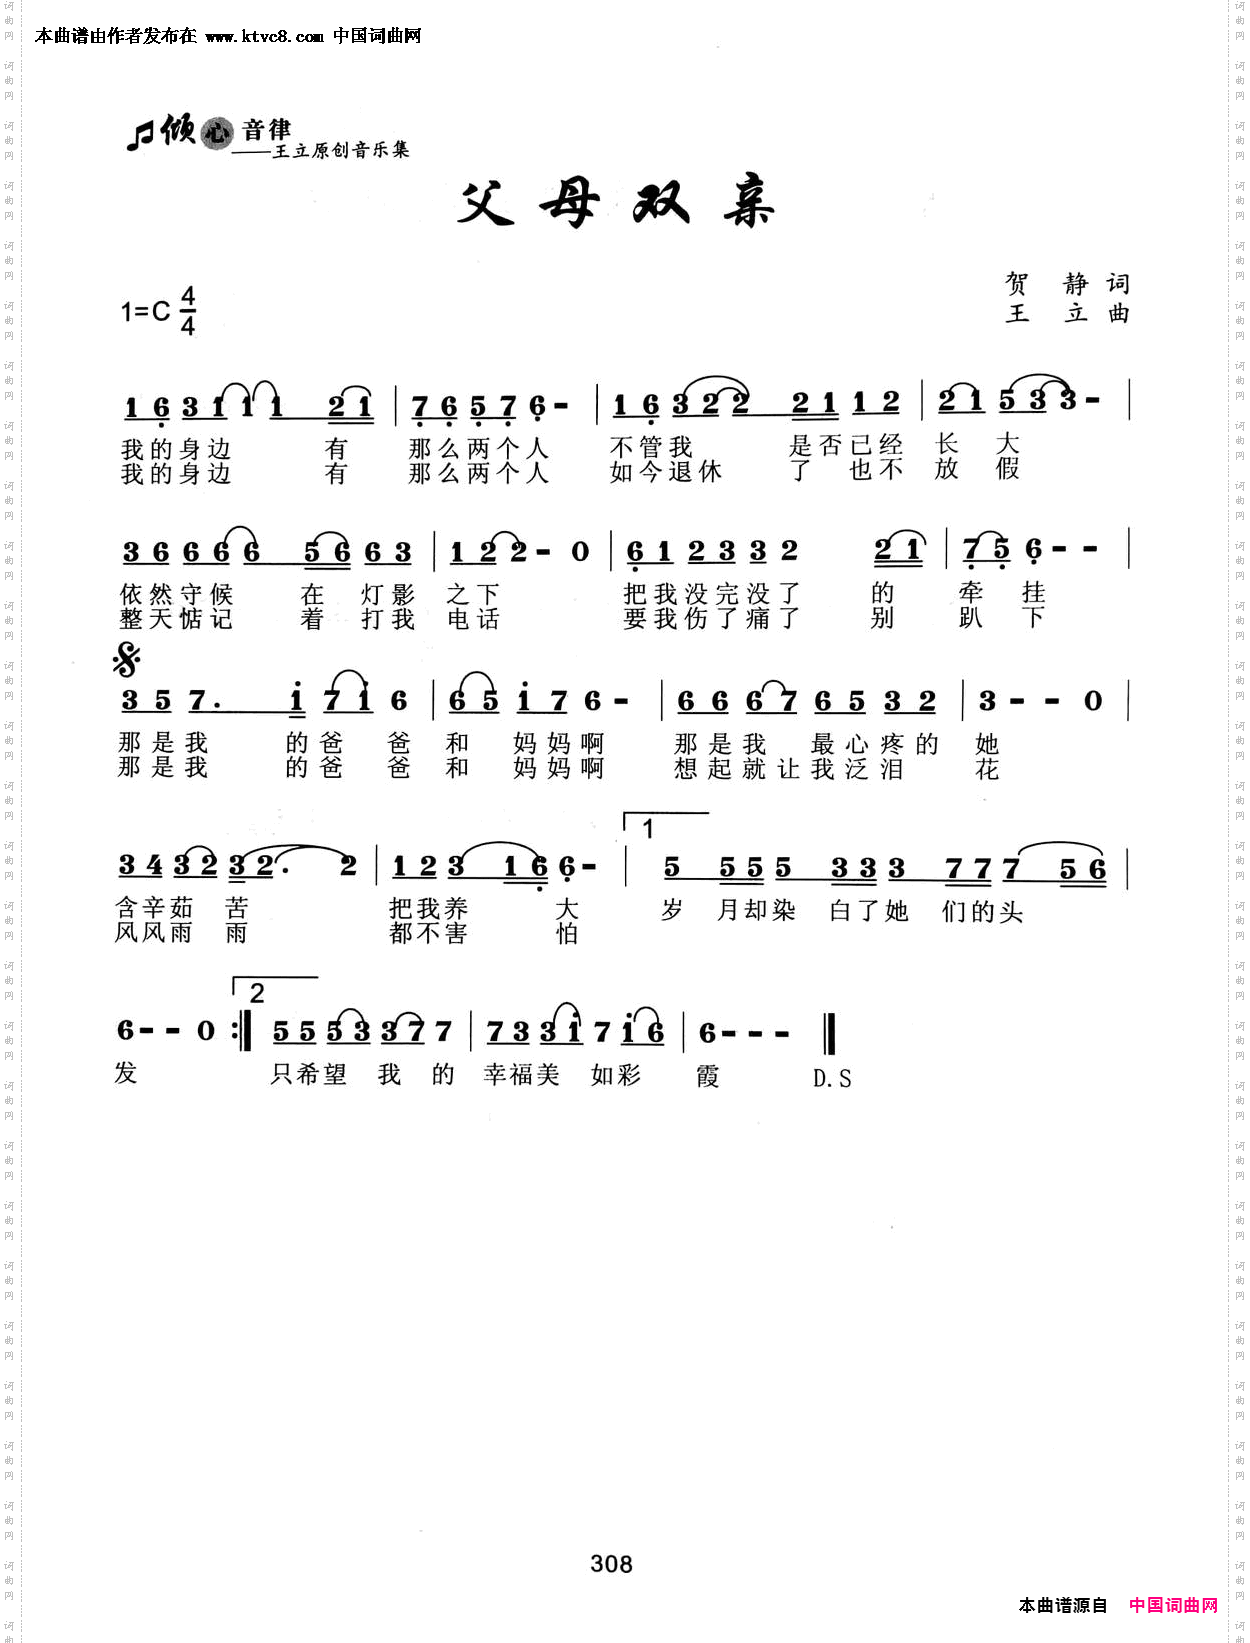 本曲谱由作者发布在 www.ktvc8.com 中国词曲网
倾心音律
——王立原创音乐集
父母双亲
贺 静 词
1=C 4/4
王 立 曲
1 6 3 1 1 1 2 1 | 7 6 5 7 6 - | 1 6 3 2 2 2 1 1 2 | 2 1 5 3 3 - |
我的身边 有 那么两个人 不管我 是否已经 长 大
我的身边 有 那么两个人 如今退休 了 也不 放 假
3 6 6 6 6 5 6 6 3 | 1 2 2 - 0 | 6 1 2 3 3 2 2 1 | 7 5 6 - - |
依然守候 在 灯影 之下 把我没完没了 的 牵 挂
整天惦记 着 打我 电话 要我伤了痛了 别 趴 下
3 5 7 . i 7 i 6 | 6 5 i 7 6 - | 6 6 6 7 6 5 3 2 | 3 - - 0 |
那是我 的爸 爸 和 妈妈啊 那是我 最心疼的 她
那是我 的爸 爸 和 妈妈啊 想起就让我泛泪 花
1
3 4 3 2 3 2 . 2 | 1 2 3 1 6 6 - | 5 5 5 5 3 3 3 7 7 7 5 6 |
含辛茹 苦 把我养 大 岁 月却染 白了她 们的头
风风雨 雨 都不害 怕
2
6 - - 0 :| 5 5 5 3 3 7 7 | 7 3 3 i 7 i 6 | 6 - - - ||
发 只希望 我 的 幸福美 如彩 霞 D.S
308
本曲谱源自 中国词曲网